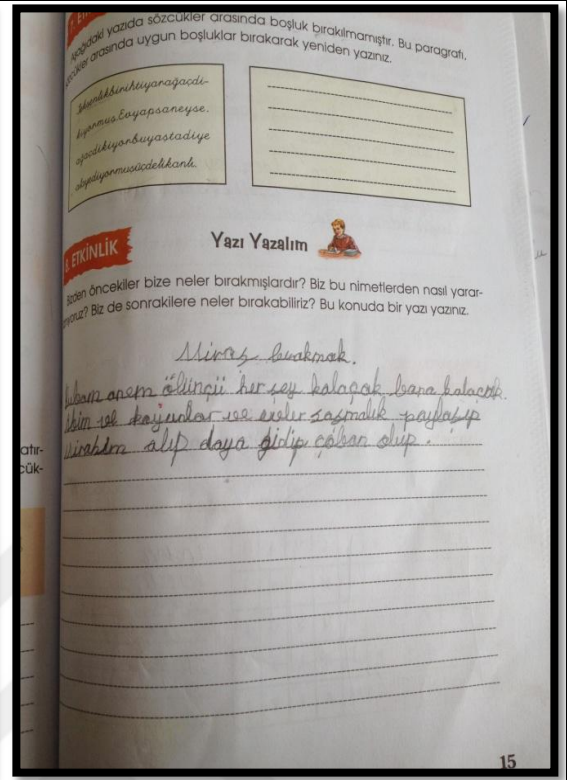 7. ETK
Aşağıdaki yazıda sözcükler arasında boşluk bırakılmamıştır. Bu paragrafı,
sözcükler arasında uygun boşluklar bırakarak yeniden yazınız.
Seksenlikbirihtiyarağaçdi-
kiyormuş.Evyapsaneyse.
ağaçdikiyorbuyaştadiye
alayediyormuşüçdelikanlı.
8. ETKİNLİK
Yazı Yazalım
Bizden öncekiler bize neler bırakmışlardır? Biz bu nimetlerden nasıl yarar-
lanıyoruz? Biz de sonrakilere neler bırakabiliriz? Bu konuda bir yazı yazınız.
Miras bırakmak.
Babam anem ölünçü her şey kalaçak bana kalaçak.
ve koyunlar ve evler paylaşıp
mirasım alıp daya gidip çoban olup.
atır-
cük-
15